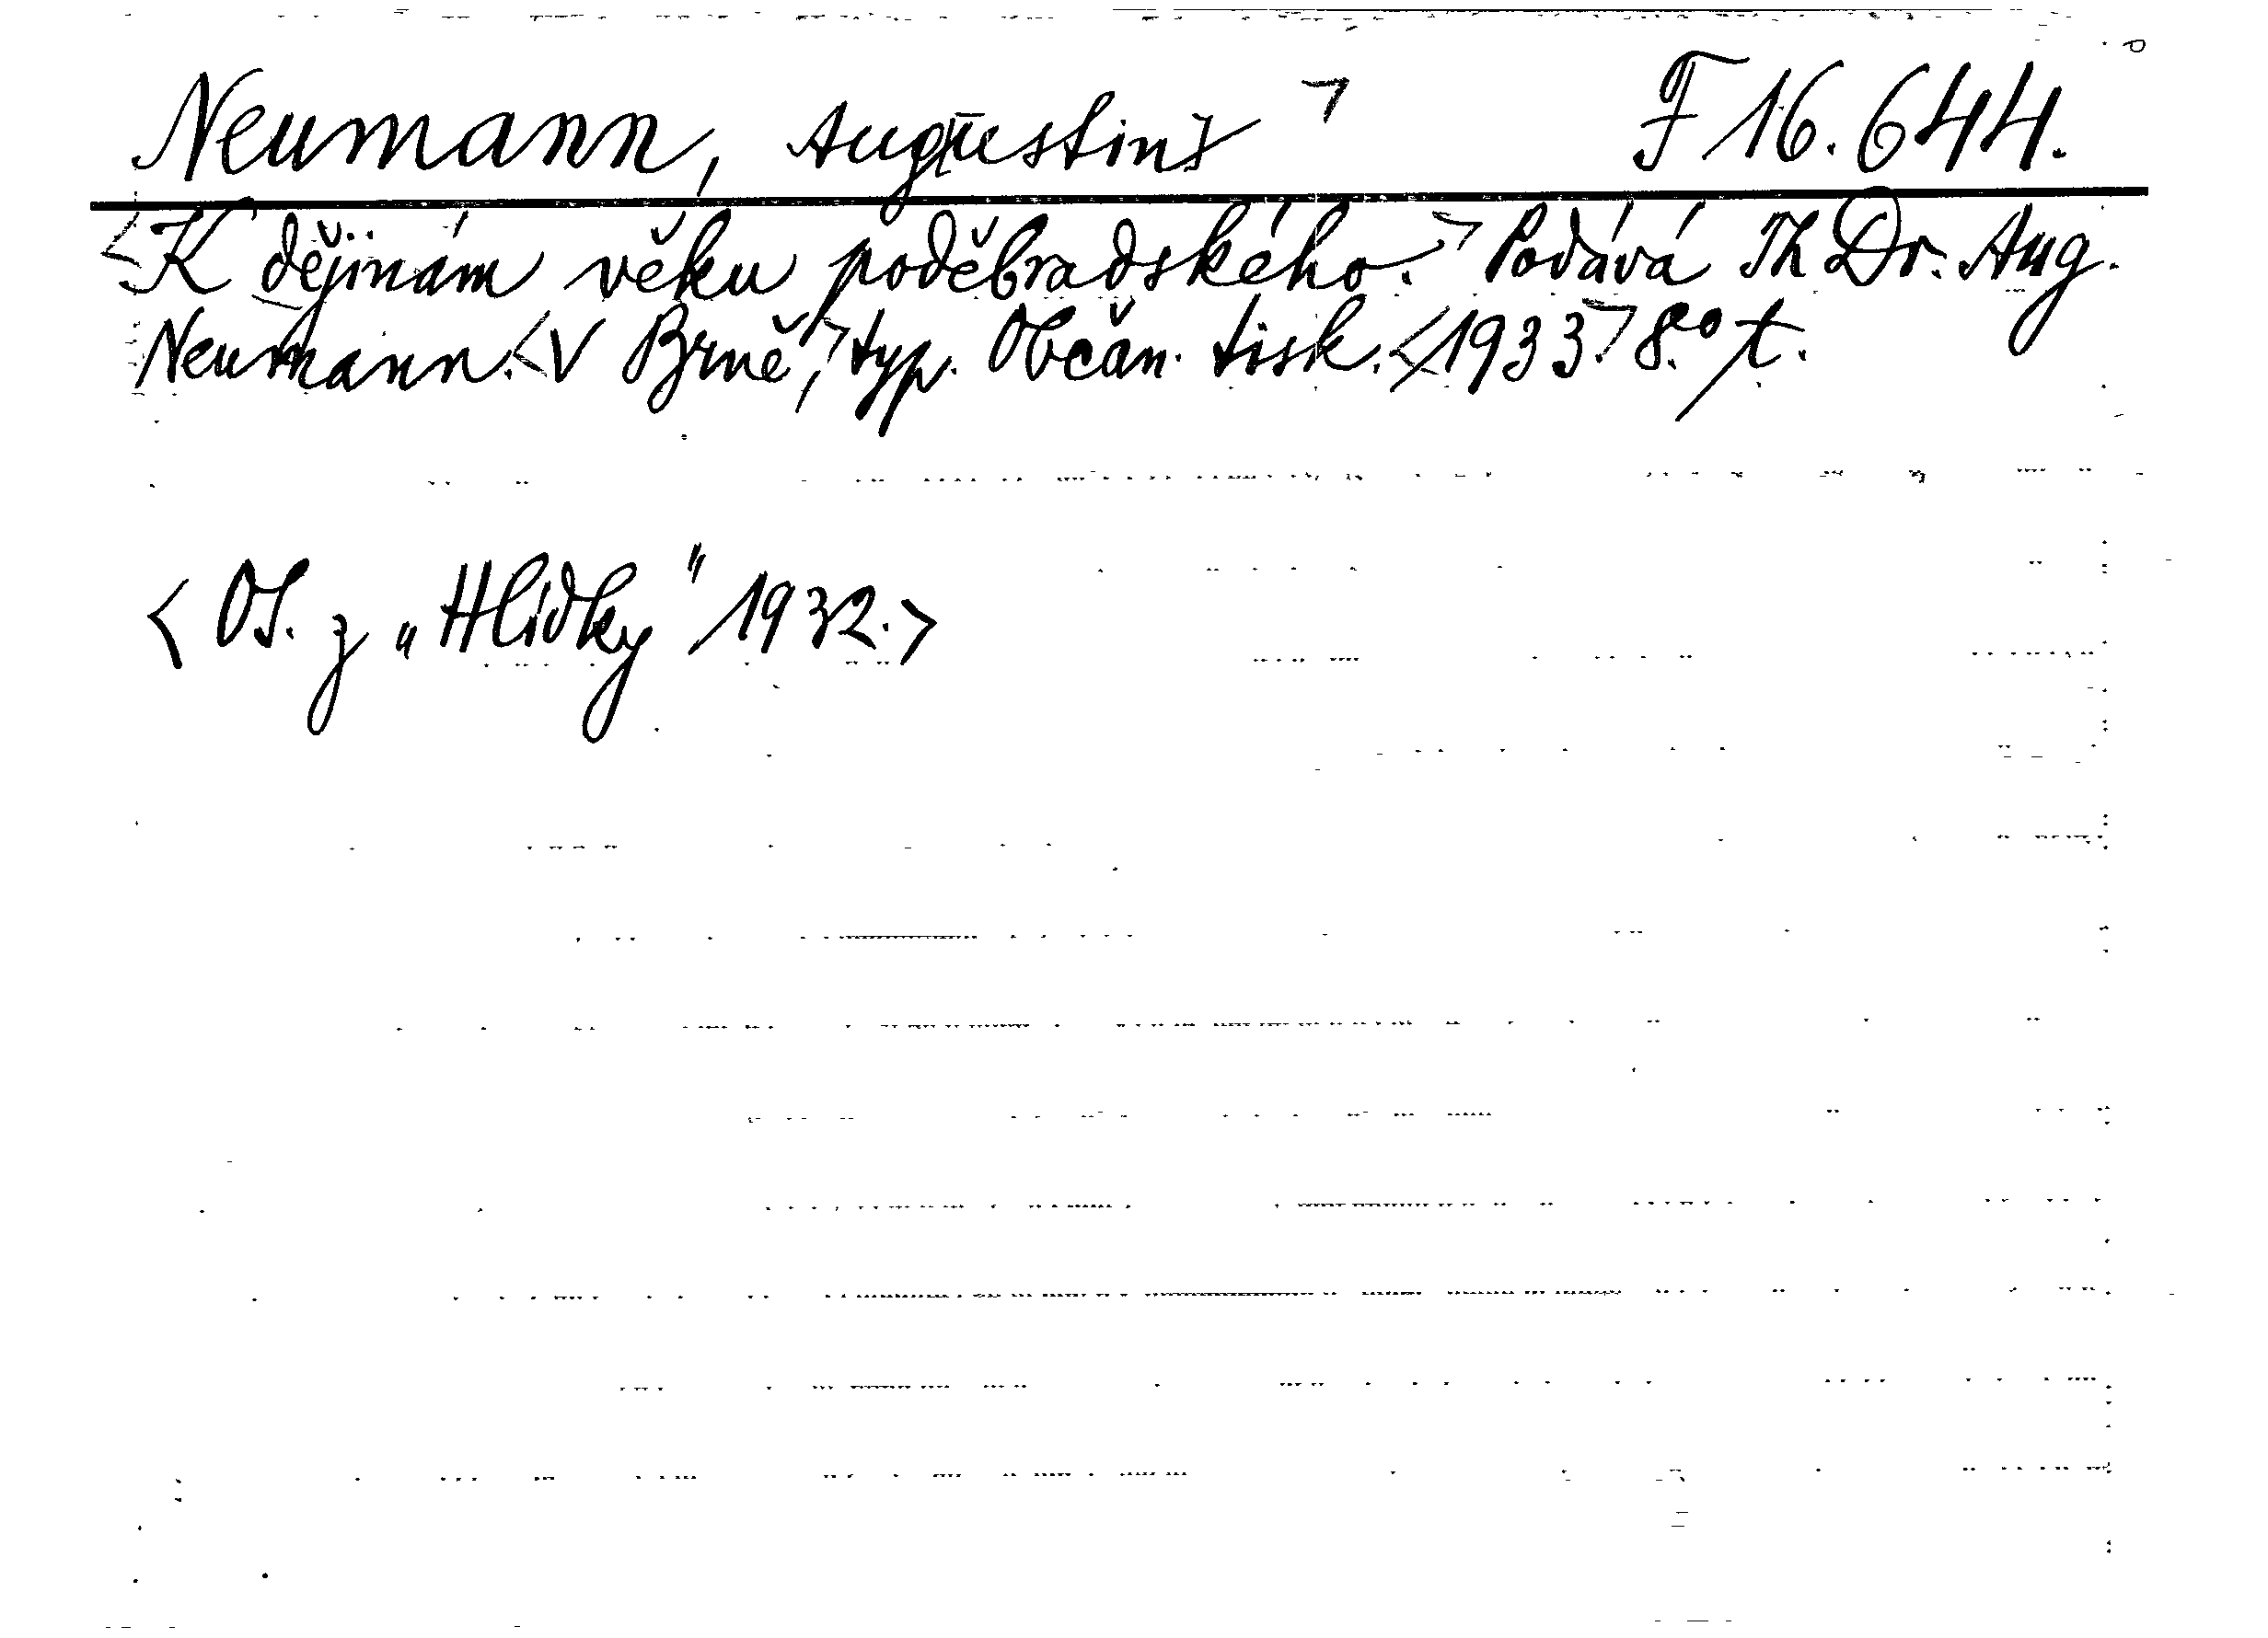 Neumann, Aug[ustin] > F 16.644.
<K dějinám věku poděbradského.> Podává Th Dr. Aug.
Neumann. <V Brně,> typ. Občan. tisk. <1933> 8.° t.
< Ot. z „Hlídky" 1932. >